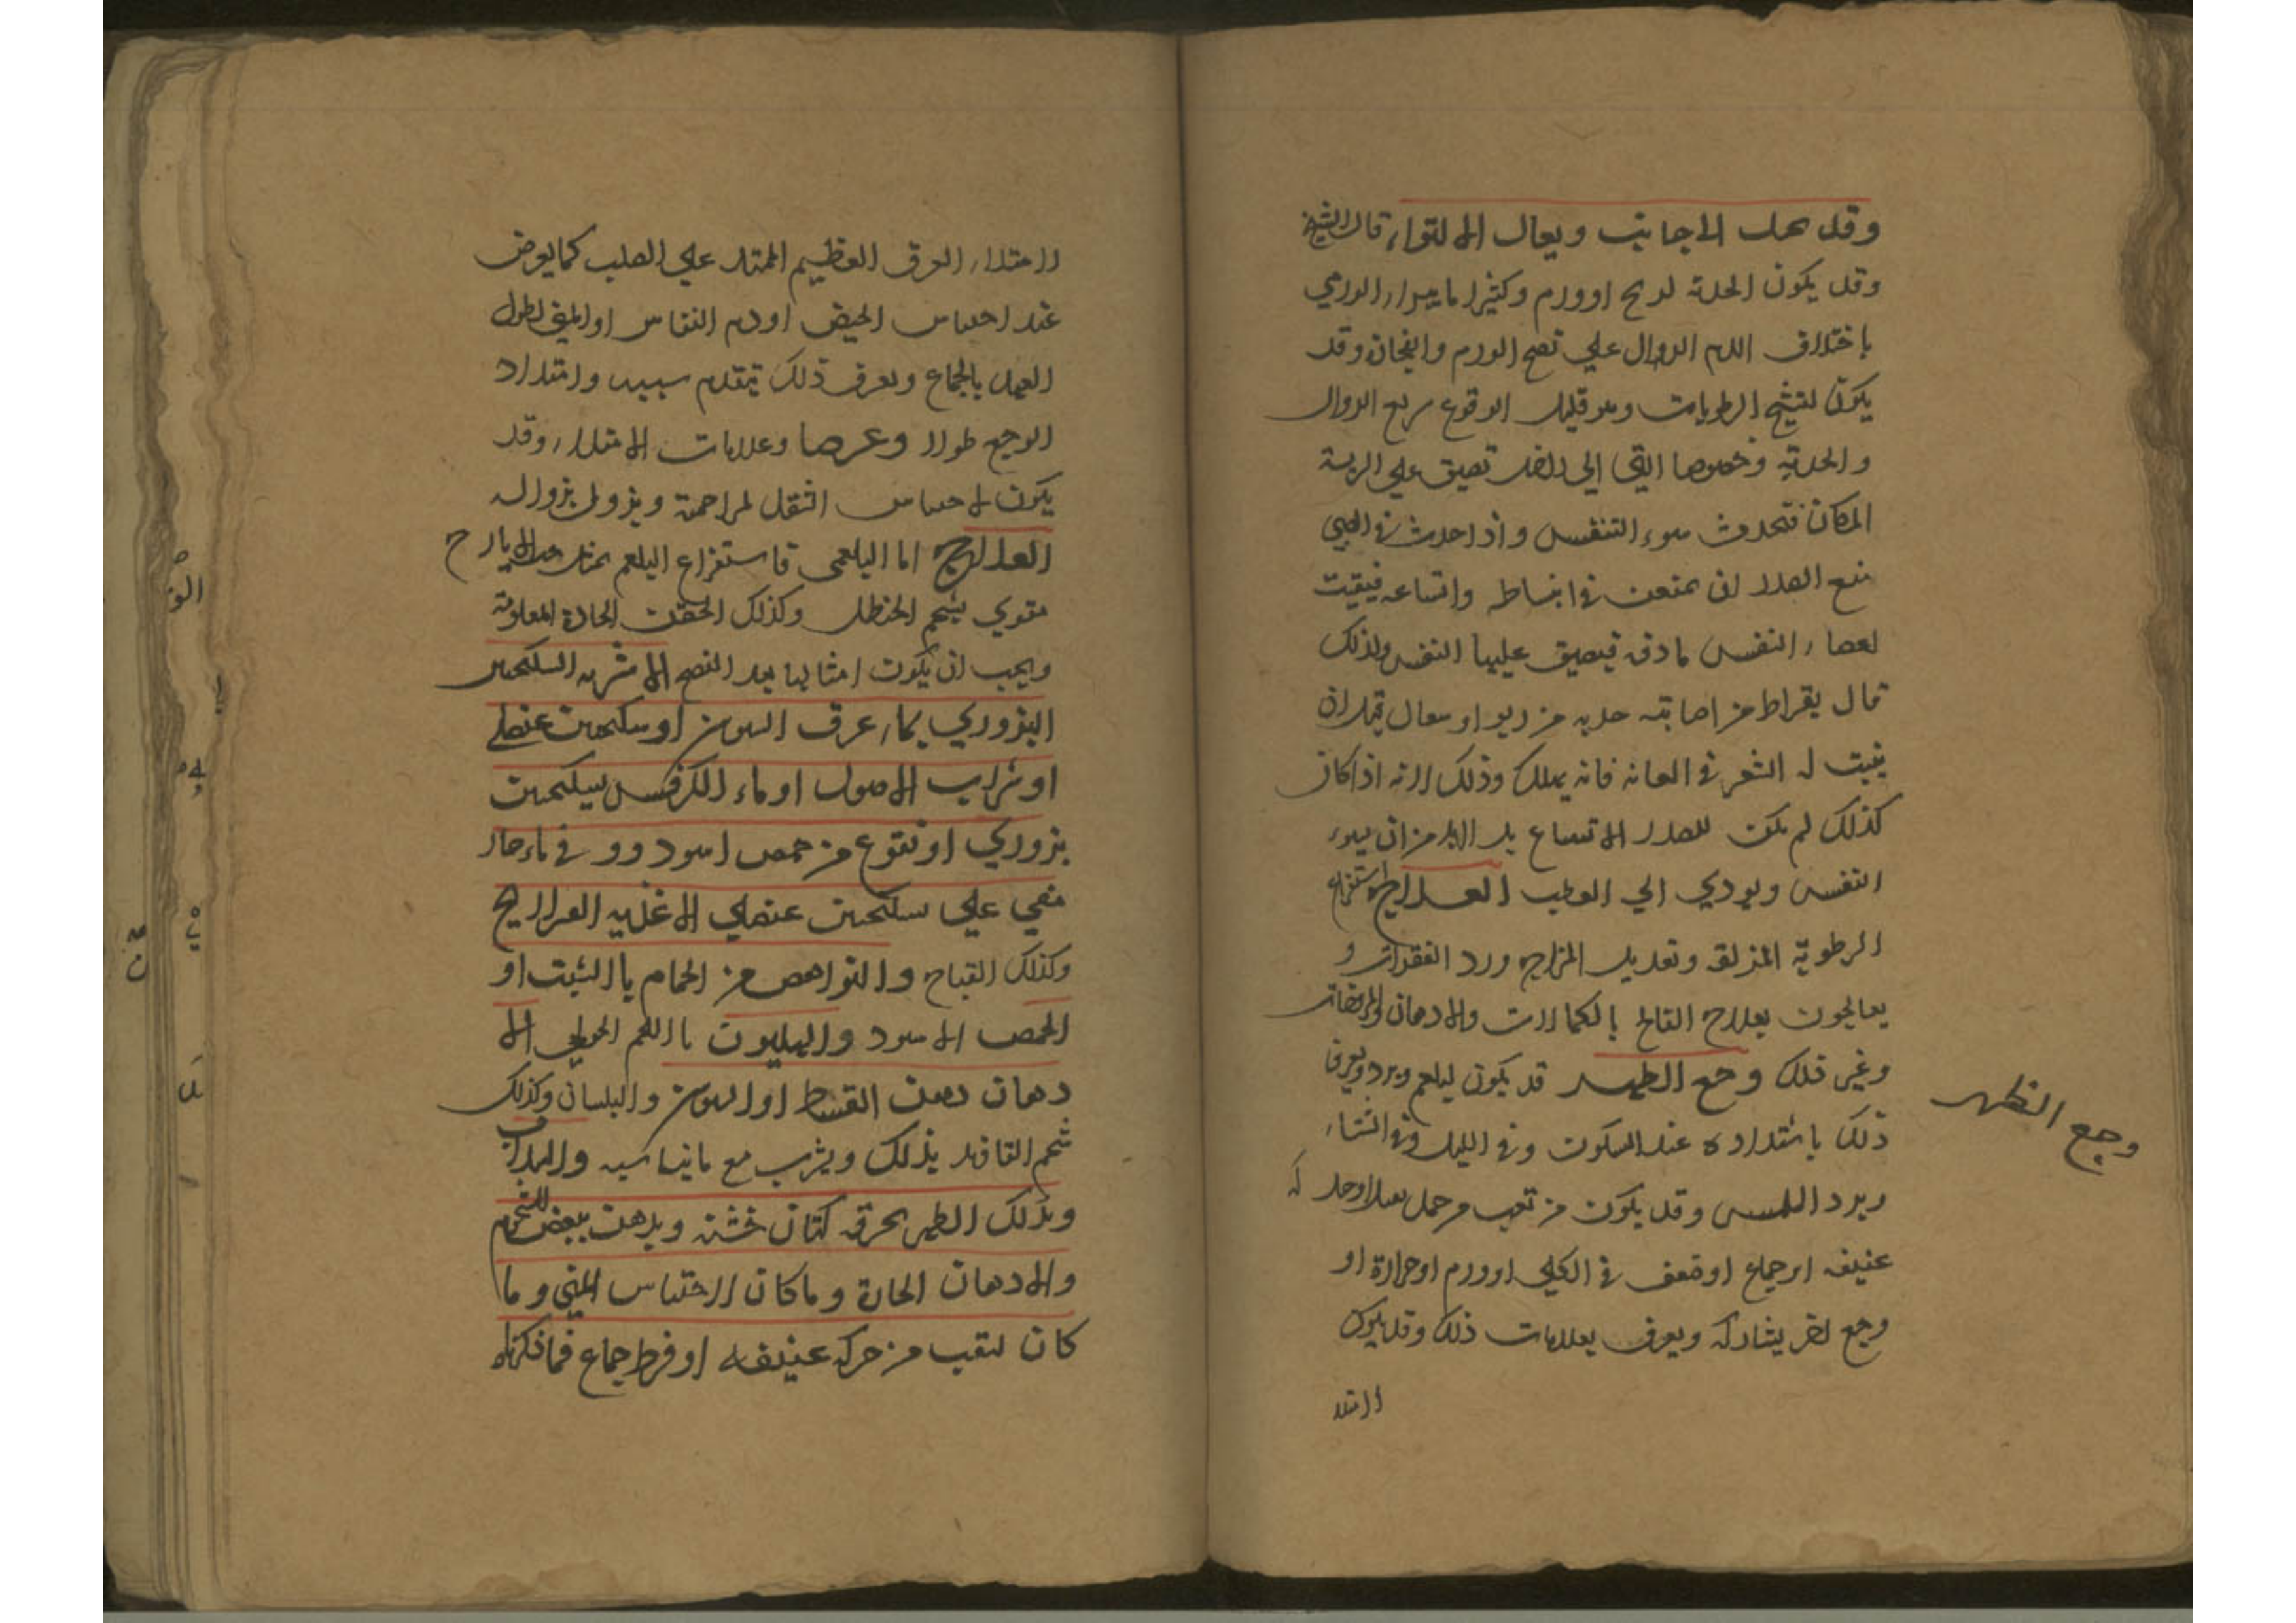 وقد الى جانب ويقال له الالتواء قال الشيخ
وقد يكون الحدبة لريح او ورم وكثيرا ما يبرا الورمي
باختلاف الدم الدوال علي نضج الورم وانفجاره وقد
يكون لتشنج الرطوبات وهو قليل الوقوع سريع الزوال
والحدبة وخصوصا التي الي داخل تضيق علي الرية
المكان فتحدث سوء التنفس واذا حدثت في الصبي
منع الصدر ان يمعن في انبساطه واتساعه فيبقيت
لعضاء النفس مادقه فيضيق عليها النفس ولذلك
قال بقراط من اصابته حدبه من ربو او سعال قبل ان
ينبت له الشعر في العانه فانه يهلك وذلك لانه اذا كان
كذلك لم يكن للصدر الاتساع بل لابد من ان يسوء
النفس ويودي الي العطب العلاج استفراغ
الرطوبة المزلقه وتعديل المزاج ورد الفقرات و
يعالجون بعلاج الفالج بالكمادات والادهان والمروخات
وغير ذلك وجع الظهر قد يكون لبلغم وبرد ويعرف
وجع الظهر
ذلك باشتداده عند السكون وفي الليل وفي الشتاء
وبرد اللمس وقد يكون من تعب من حمل او حركه
عنيفه او جماع او ضعف في الكلي او ورم او حرارة او
وجع اخر يشاركه ويعرف بعلامات ذلك وقد يكون
لامتلا
لامتلاء العرق العظيم الممتد علي الصلب كما يعرض
عند احتباس الحيض او دم النفاس او المني لطول
العهد بالجماع ويعرف ذلك بتقدم سببه وامتداد
الوجع طولا وعرضا وعلامات الامتلاء وقد
يكون لاحتباس الثفل لمزاحمة ويزول بزواله
العلاج اما البلغمي فاستفراغ البلغم بمثل الايارج
مقوي بشحم الحنظل وكذلك الحقن الحادة المعلومة
ويجب ان يكون امثالها بعد النضج الاشربه السكنجبين
البزوري بماء عرق السوس او سكنجبين عنصلي
او شراب الاصول او ماء الكرفس بسكنجبين
بزوري او نقوع من حمص اسود في ماء حار
مصفي علي سكنجبين عنصلي الاغذيه الفراريج
وكذلك القباج والنواهض من الحمام بالشبت او
الحمص الاسود والهليون بالاللحم الحولي الا
دهان دهن القسط او السوسن والبلسان وكذلك
شحم القافد يدلك ويشرب مع ما يناسبه
ويدلك الظهر بخرقه كتان خشنه ويدهن ببعض الشحوم
والادهان الحارة وما كان لاحتباس المني وما
كان لتعب من حركه عنيفه او فرط جماع فماذكرناه